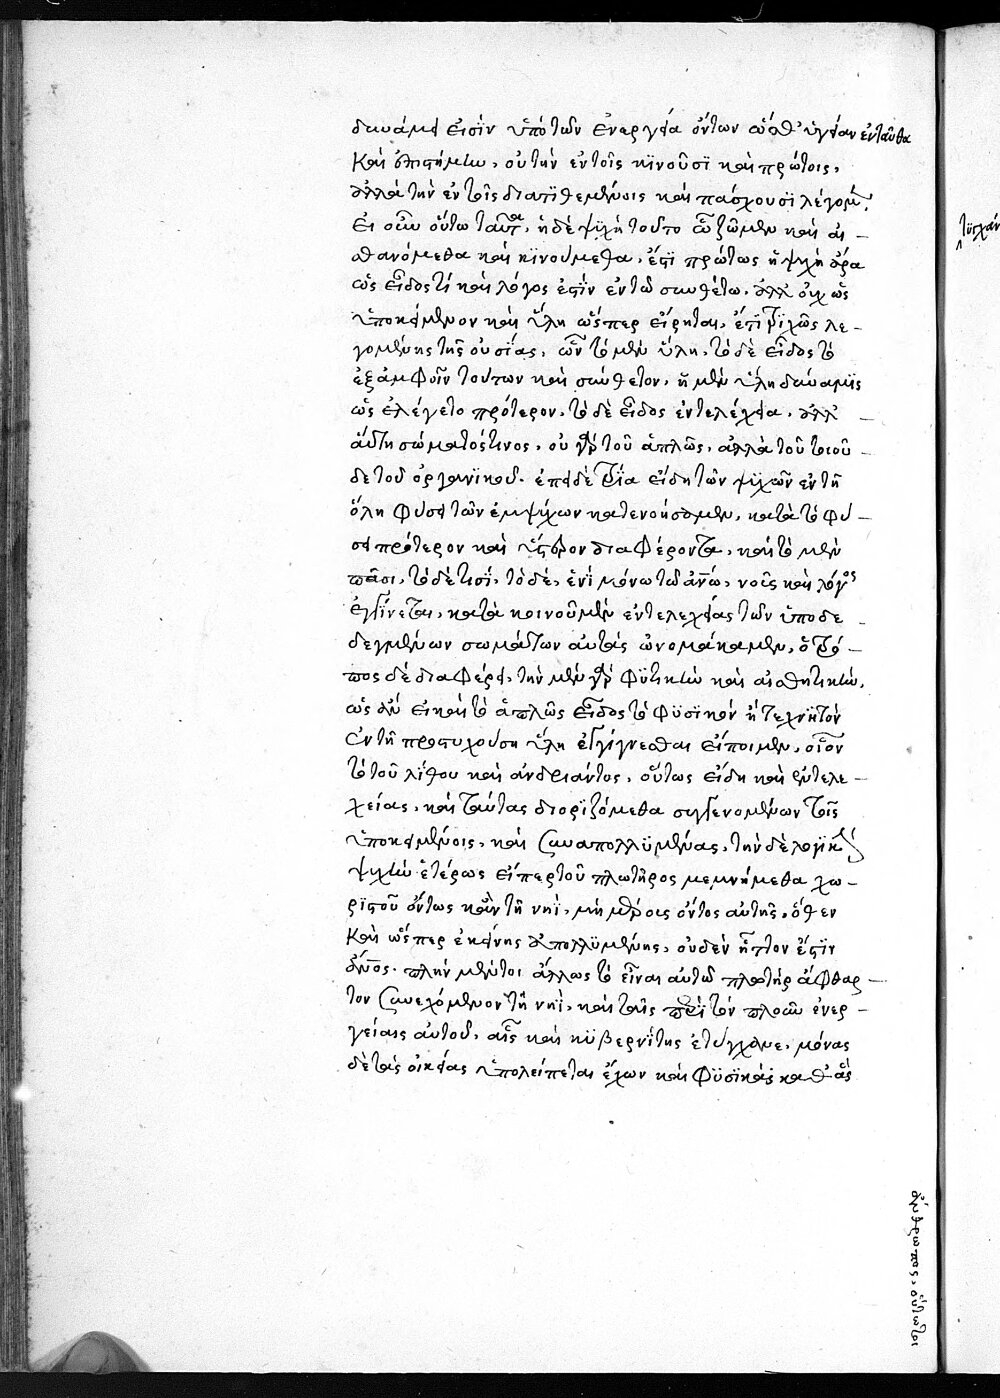 δυνάμει εἰσὶν ὑπὸ τῶν ἐνεργείᾳ ὄντων ὥσθ' ὑγείαν ἐνταῦθα
καὶ ἐπιστήμην, οὐ τὴν ἐν τοῖς κινοῦσι καὶ πρώτοις,
ἀλλὰ τὴν ἐν τοῖς διατιθεμένοις καὶ πάσχουσι λέγομεν.
Εἰ οὖν οὕτω ταῦτα, ἡ δὲ ψυχὴ τοῦτο ᾧ ζῶμεν καὶ αἰ-
σθανόμεθα καὶ κινούμεθα, ἔστι πρώτως ἡ ψυχὴ ἄρα
ὡς εἶδός τι καὶ λόγος ἐστὶν ἐν τῷ συνθέτῳ, ἀλλ' οὐχ ὡς
ὑποκείμενον καὶ ὕλη ὥσπερ εἴρηται, ἔτι τριχῶς λε-
γομένης τῆς οὐσίας, ὧν τὸ μὲν ὕλη, τὸ δὲ εἶδος τὸ
ἐξ ἀμφοῖν τούτων καὶ σύνθετον, ἡ μὲν ὕλη δύναμις
ὡς ἐλέγετο πρότερον, τὸ δὲ εἶδος ἐντελέχεια, ἀλλ'
αὕτη σώματός τινος, οὐ γὰρ τοῦ ἁπλῶς, ἀλλὰ τοῦ τοιοῦ-
δε τοῦ ὀργανικοῦ. ἐπεὶ δὲ τρία εἴδη τῶν ψυχῶν ἐν τῇ
ὅλῃ φύσει τῶν ἐμψύχων κατενοήσαμεν, κατὰ τὸ φύ-
σει πρότερον καὶ ὕστερον διαφέροντα, καὶ τὸ μὲν
πᾶσι, τὸ δὲ τισὶ, τὸ δὲ, ἑνὶ μόνῳ τῷ ἀνῳ, νοῦς καὶ λόγος
ἐγγίνεται, κατὰ κοινοῦ μὲν ἐντελεχείας τῶν ὑποδε-
δεγμένων σωμάτων αὐτὰς ὠνομάκαμεν, ὁ τρό-
πος δὲ διαφέρει, τὴν μὲν γὰρ φυτικὴν καὶ αἰσθητικὴν,
ὡς ἂν εἰ καὶ τὸ ἁπλῶς εἶδος τὸ φυσικὸν ἢ τεχνητὸν
ἐν τῇ προστυχούσῃ ὕλῃ ἐγγίγνεσθαι εἴποιμεν, οἷον
τὸ τοῦ λίθου καὶ ἀνδριάντος, οὕτως εἴδη καὶ ἐντελε-
χείας, καὶ ταύτας διοριζόμεθα συγγενομένων τοῖς
ὑποκειμένοις, καὶ συναπολλυμένας, τὴν δὲ λογικὴν
ψυχὴν ἑτέρως εἴπερ τοῦ πλωτῆρος μεμνήμεθα χω-
ριστοῦ ὄντως κἂν τῇ νηῒ, μὴ μέρους ὄντος αὐτῆς, ὅθεν
καὶ ὥσπερ ἐκείνης ἀπολλυμένης, οὐδὲν ἧττον ἐστὶν
ἄνος. πλὴν μέντοι ἄλλως τὸ εἶναι αὐτῷ πλωτῆρ ἄφθαρ-
τον συνεχόμενον τῇ νηῒ, καὶ ταῖς περὶ τὸν πλοῦν ἐνερ-
γείαις αὐτοῦ, αἷς καὶ κυβερνίτης ἐτύγχανε, μόνας
δὲ τὰς οἰκείας ὑπολείπεται ἔχων καὶ φυσικὰς καθ' ἃς
ἄνθρωπος, οὑτωσὶ